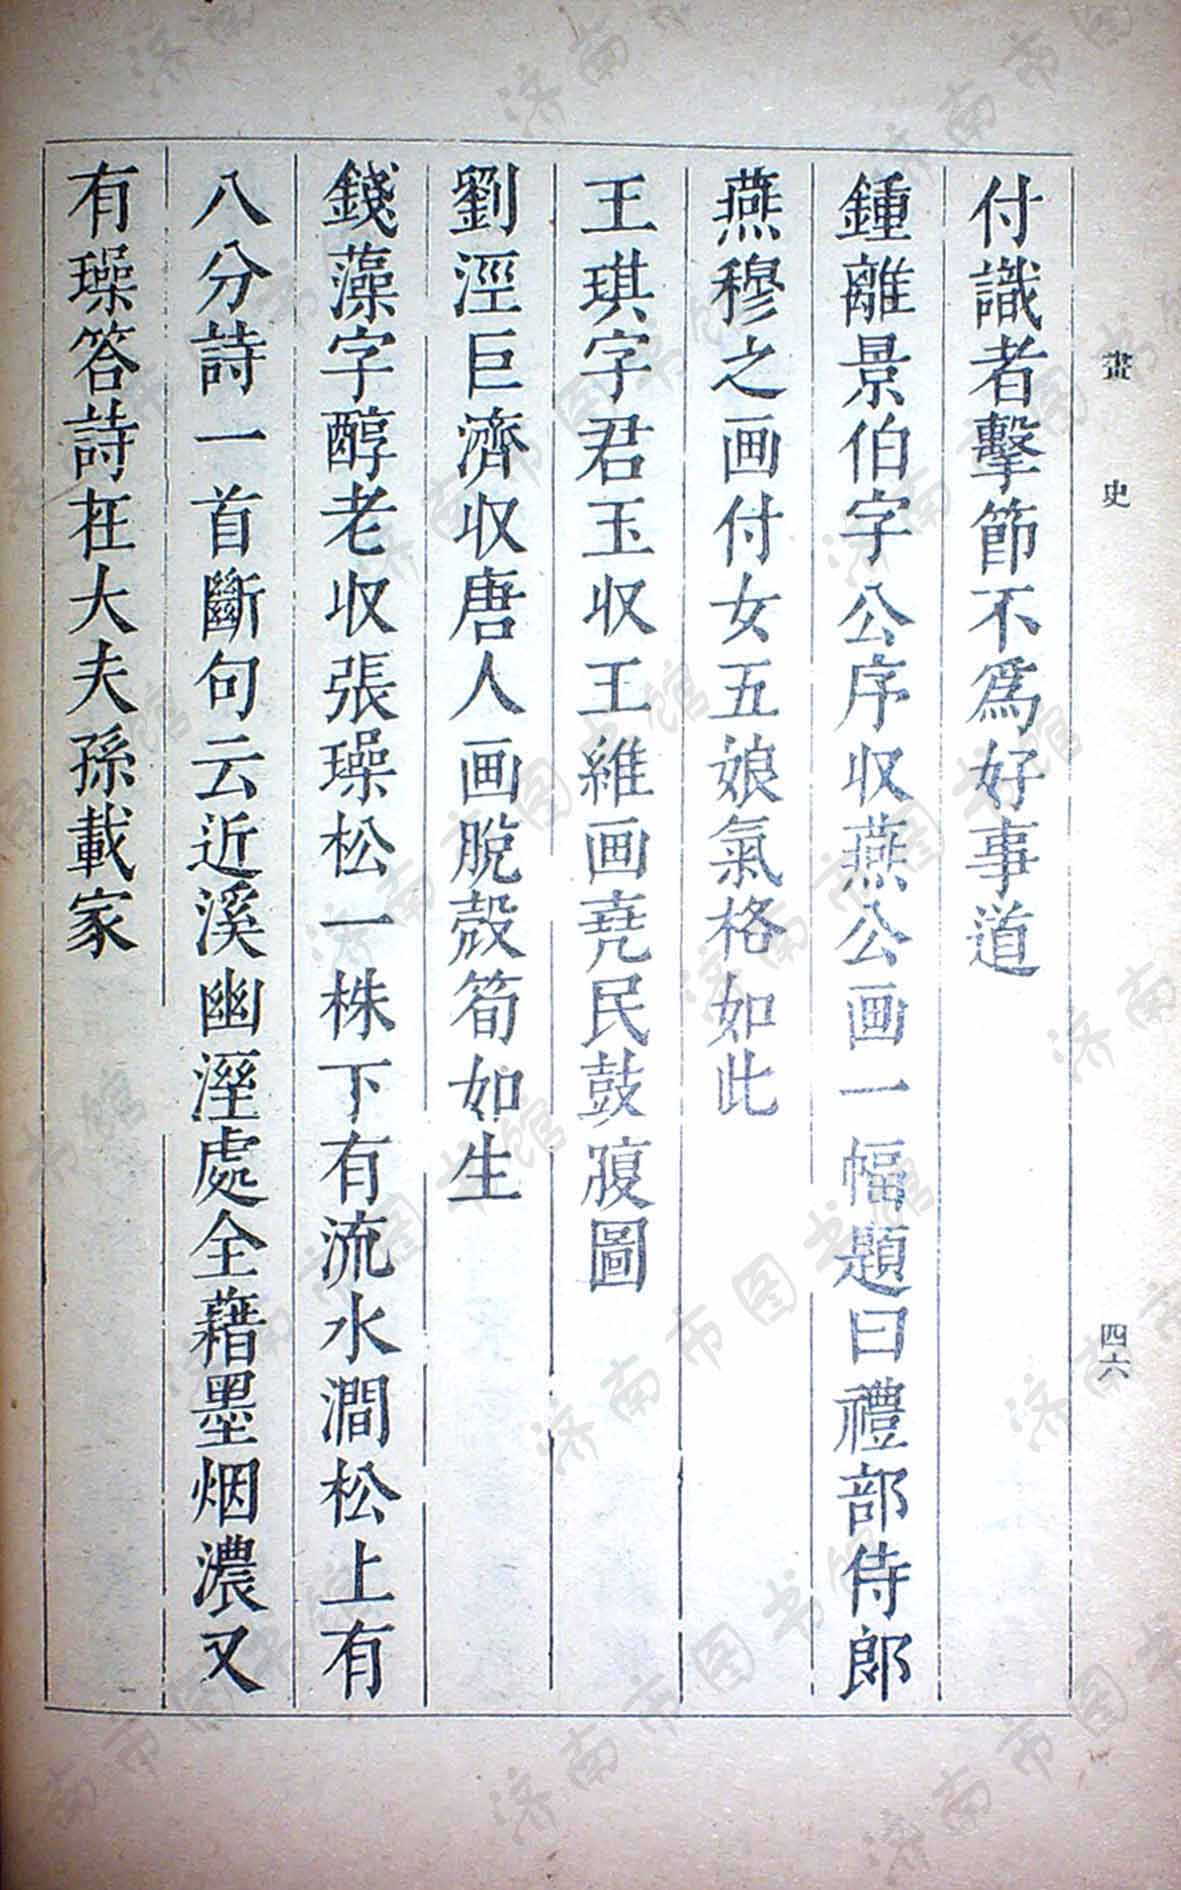 畫史
四六
付識者擊節不爲好事道
鍾離景伯字公序收燕公画一幅題曰禮部侍郎
燕穆之画付女五娘氣格如此
王琪字君玉収王維画堯民鼓腹圖
劉涇巨濟収唐人画脫殼筍如生
錢藻字醇老収張璪松一株下有流水澗松上有
八分詩一首斷句云近溪幽溼處全藉墨烟濃又
有璪答詩在大夫孫載家
济南市图书馆